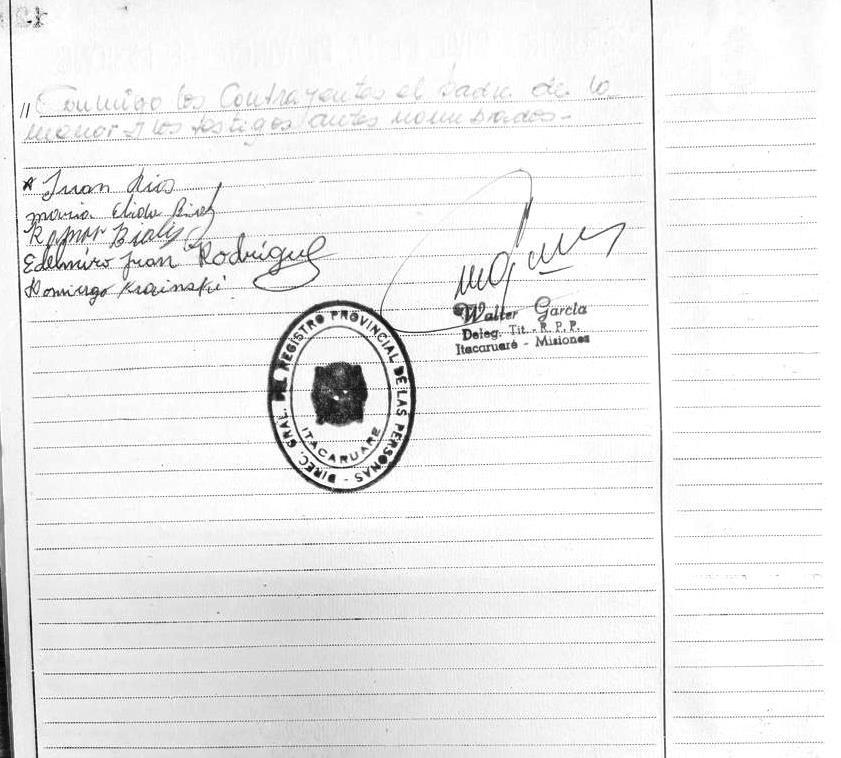 // Conmigo los Contrayentes el padre de la
menor y los testigos antes nombrados.-
Juan Rios
Maria Elida
Ramon
Edelmiro Juan Rodriguez
Domingo
Walter García
Deleg. Tit. - R. P. P.
Itacaruaré - Misiones
DIREC. GRAL. DEL REGISTRO PROVINCIAL DE LAS PERSONAS -
ITACARUARE